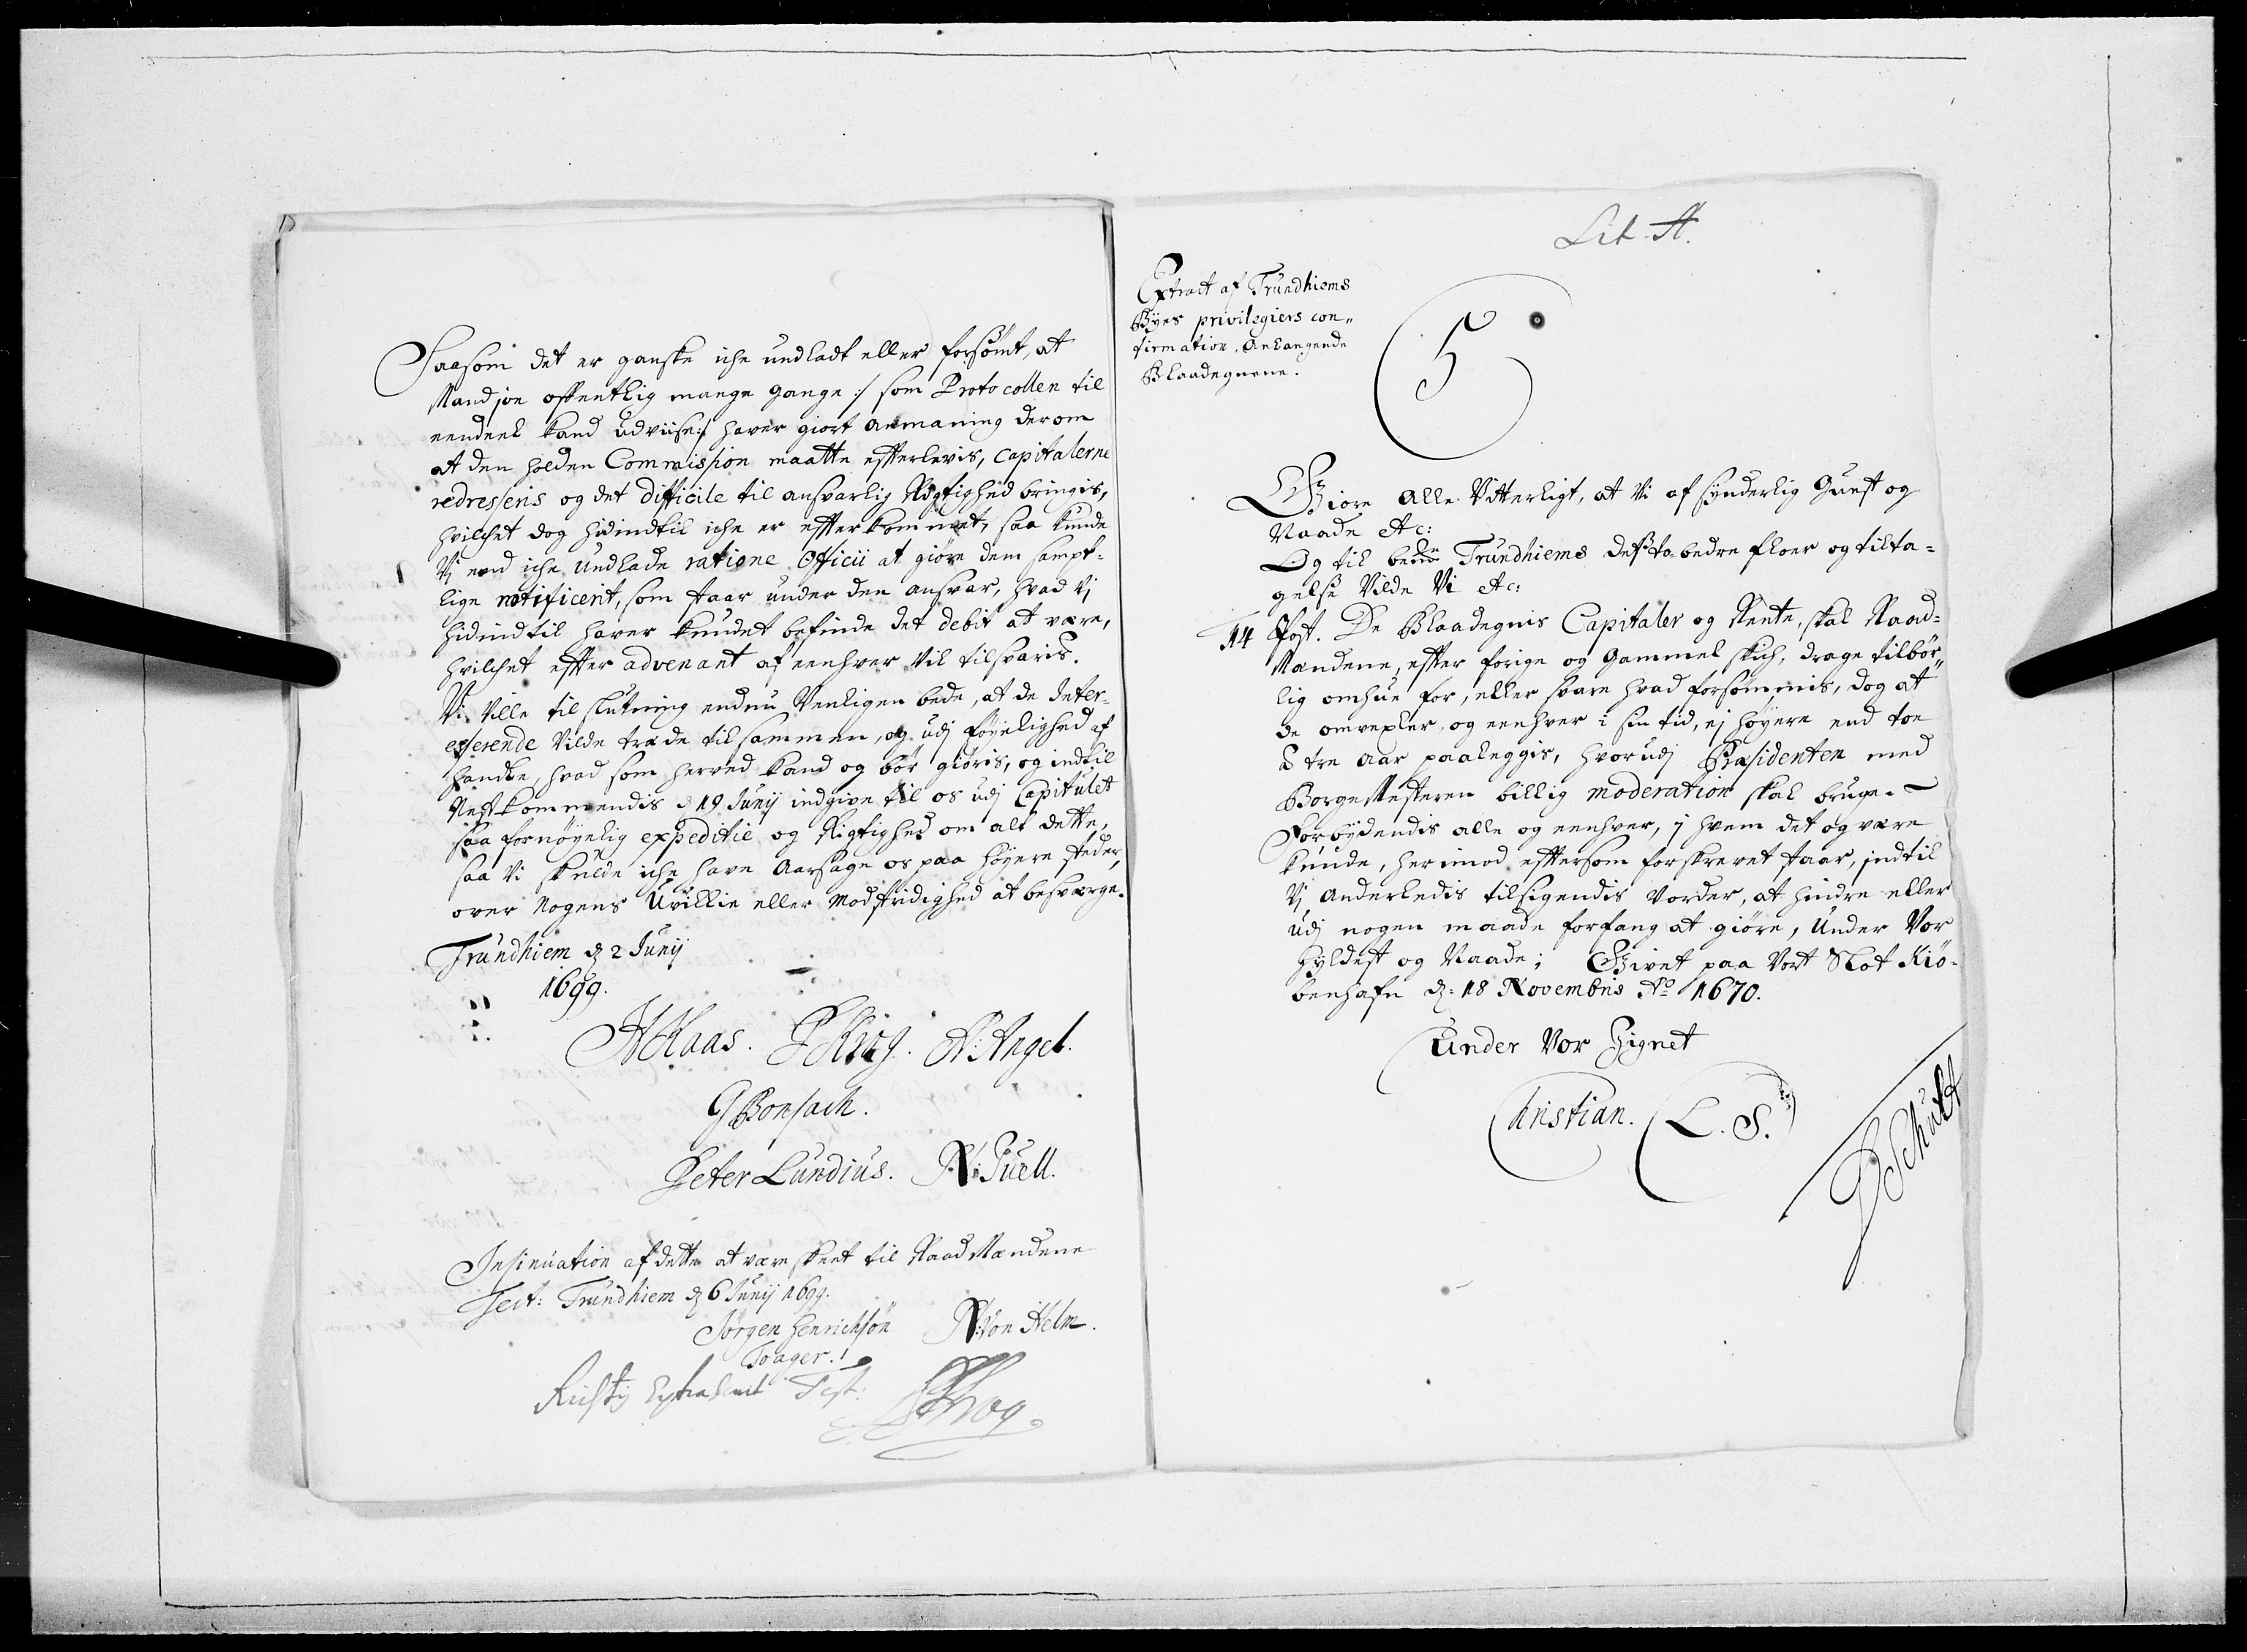 Saasom det er ganske iche undladt eller forsømt, at
Mand jon offentlig mange gange :/ som Protocollen til
eendeel kand udviise :/ haver giort anmaning derom
at den holden Commission maatte efterlevis, Capitalerne
redresseris og det difficile til ansvarlig Rigtighed bringis,
hvilchet dog hidindtil iche er efterkommet, saa kunde
Vj end iche undlade ratione Officii at giøre dem sampt-
lige notificerit, som staar under den ansvar, hvad Vj
hidindtil haver kundet befinde det debit at være,
hvilchet efter advenant af eenhver vil tilsvaris.
Vi ville til slutning endnu Venligen bede, at de inter-
esserende Vilde træde tilsammen, og udj føyelighed af
handle, hvad som herved kand og bør giøris, og indtil
Nestkommendis d 19 Junij indgive til os udj Capitulet
saa fornøyelig expeditie og Rigtighed om alt dette,
saa Vi skulde iche have Aarsage os paa høyere steder,
over Nogens Uvillie eller Modstridighed at besværge.
Trundhiem d 2 Junij
1699.
A Kaas. P Krog. A: Angel.
G Bonsach.
Peter Lundius. N: Juell.
Insinuation af dette at være skeet til Raad Mændene
Test: Trundhiem d 6 Junij 1699.
Jørgen Henrichsøn N: von Helm.
Toager.
Rigtig Extraherit Test:
P Krog
Lit. A.
Extract af Trundhiems
Byes privilegiers con„
firmation, Anlangende
Blaadegnene.
5
Giøre Alle Vitterligt, at Vi af synderlig Gunst og
Naade Etc:
Og til bem:te Trundhiems dess to bedre floer og tilta-
gelse Vilde Vi Etc:
14 Post. De Blaadegnis Capitaler og Rente, skal Raad-
Mændene, efter forige og Gammel skich, drage tilbør„
lig omhue for, eller svare hvad forsømmis, dog at
de omvexler, og eenhver i sin tid, ej høyere end toe
à tre Aar paaleggis, hvorudj Præsidenten med
BorgeMesteren billig moderation skal bruge.
Forbydendis alle og eenhver, j hvem det og være
kunde, herimod, eftersom forskrevet staar, indtil
Vj Anderledis tilsigendis Vorder, at hindre eller
udj nogen maade forfang at giøre, Under Vor
Hyldest og Naade; Givet paa Vort Slot Kiø-
benhafn d: 18 Novembris Ao 1670.
Under Vor Signet
Christian. (L. S.)
P Schult